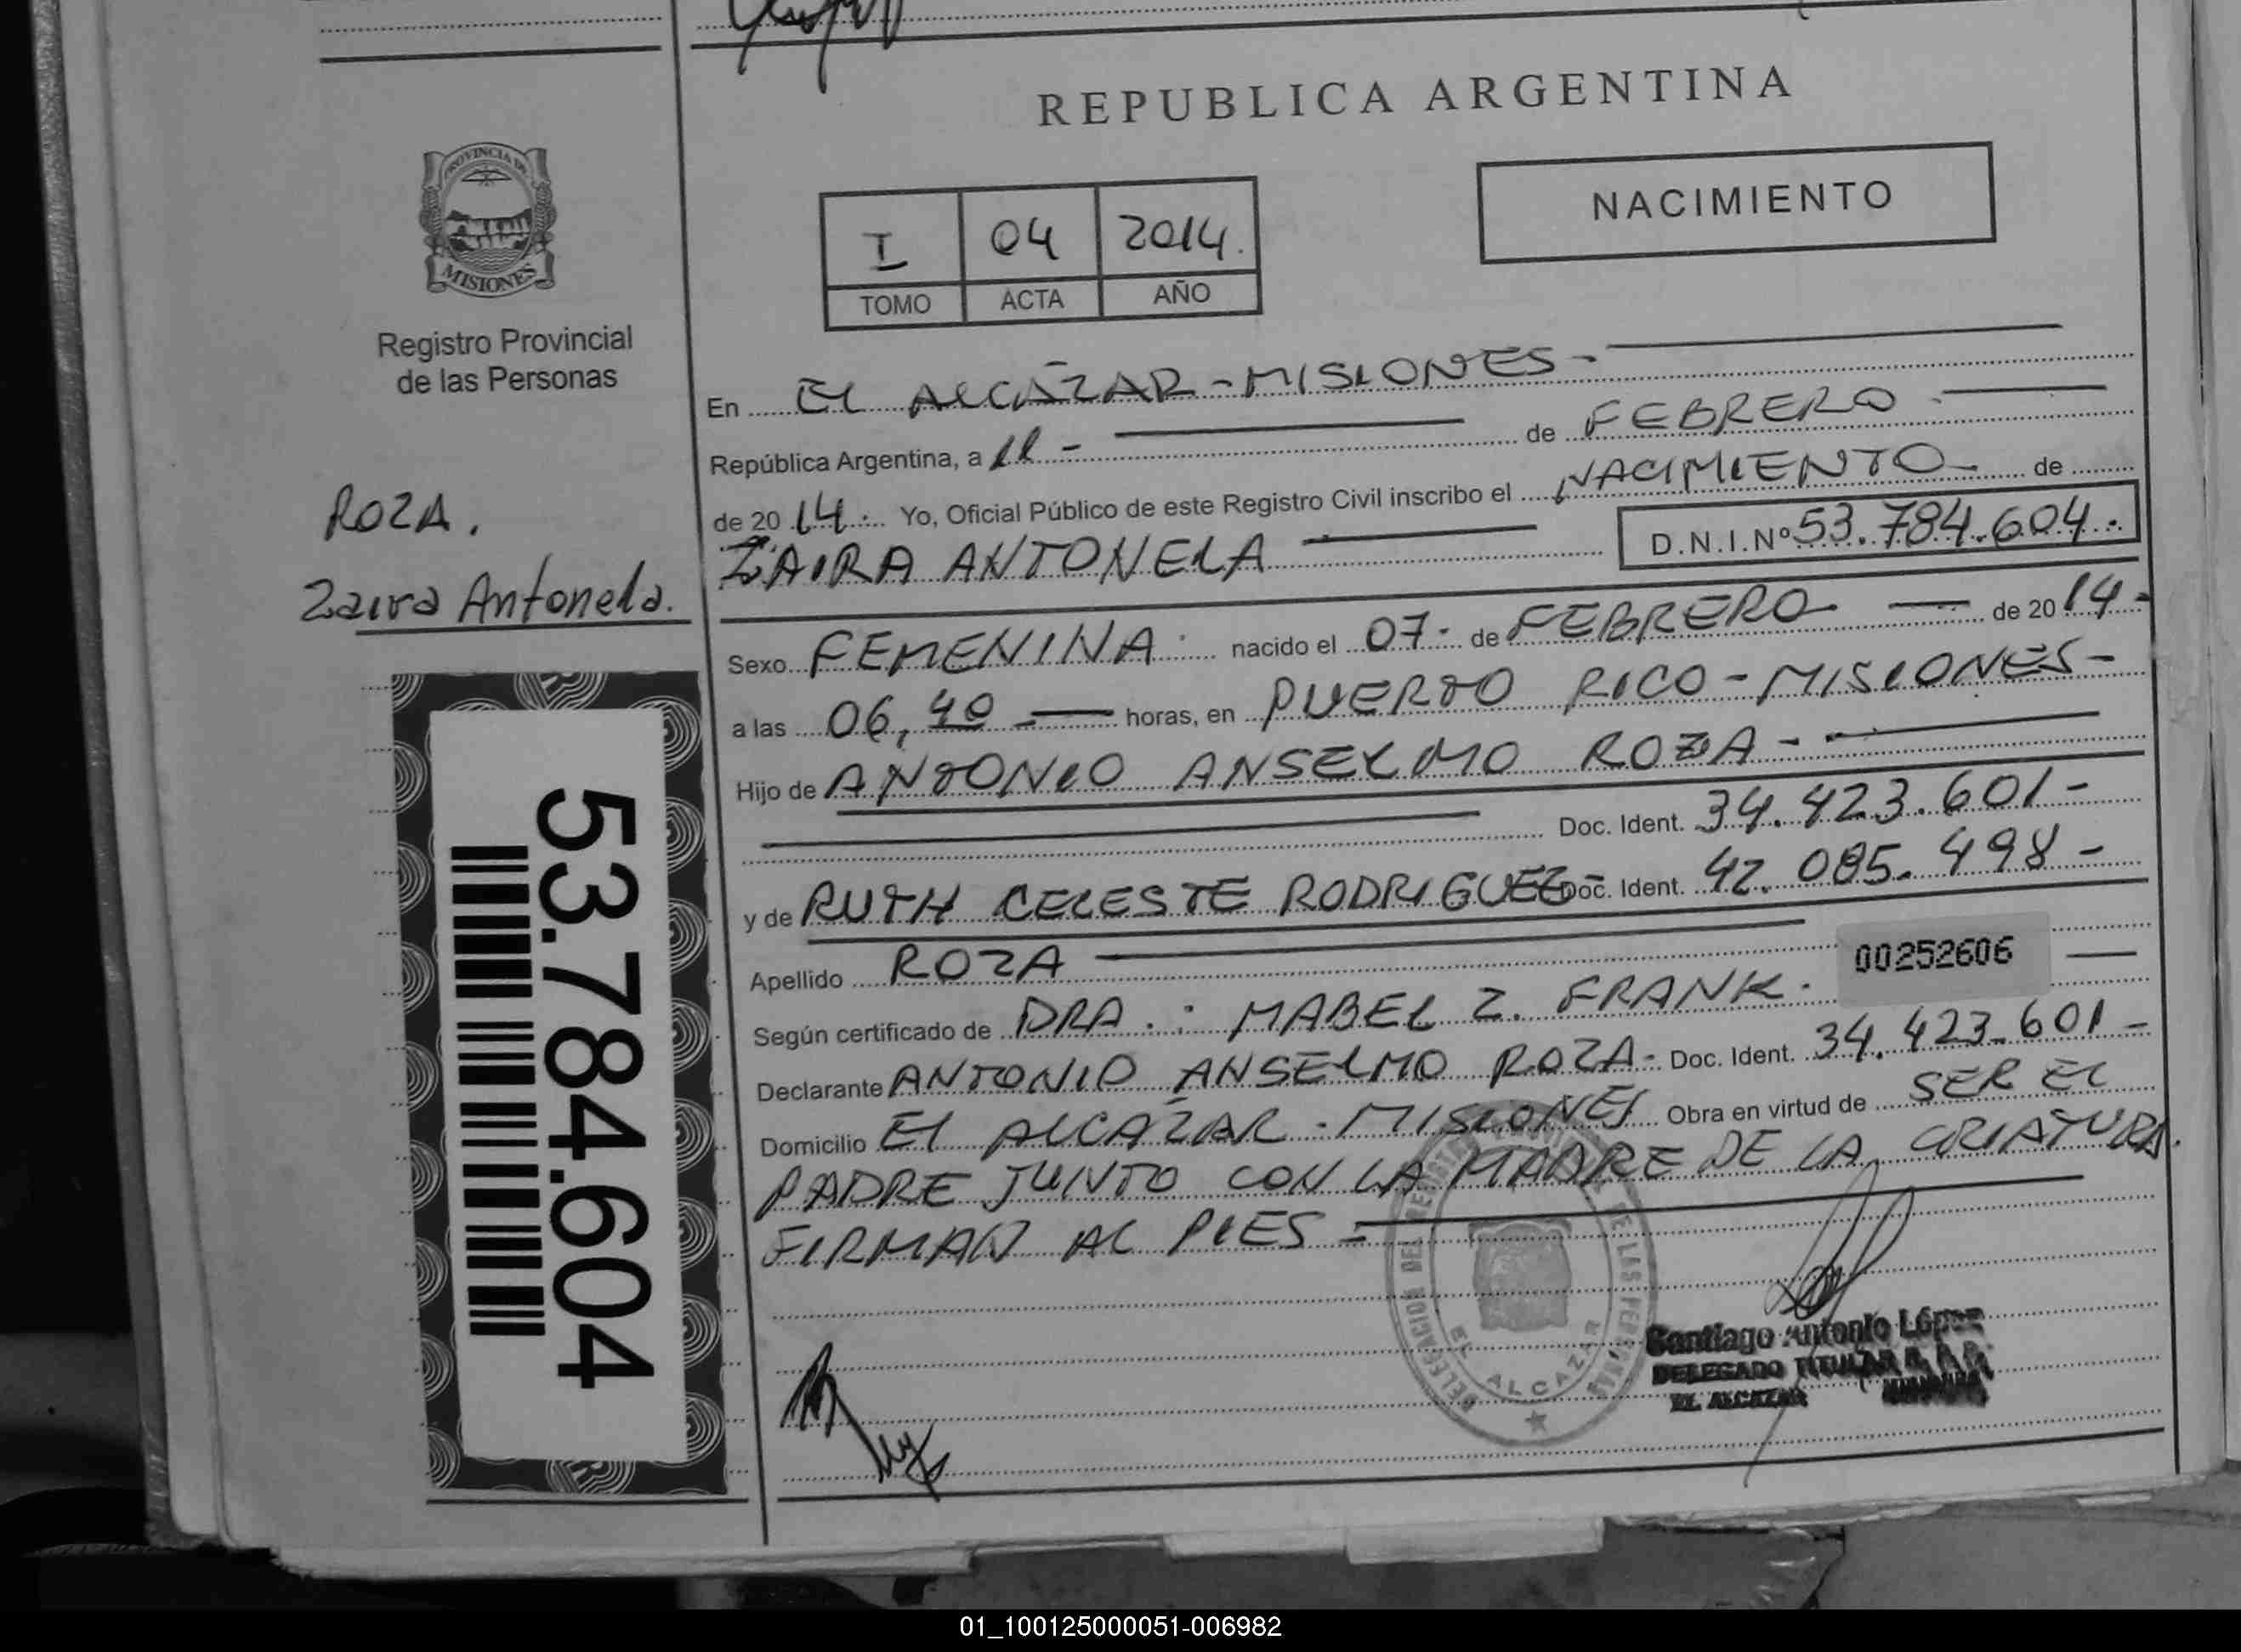 REPUBLICA ARGENTINA
PROVINCIA DE
MISIONES
Registro Provincial
de las Personas
NACIMIENTO
I 04 2014.
TOMO ACTA AÑO
En EL ALCÁZAR - MISIONES -
República Argentina, a 11 - de FEBRERO -
de 20 14 . Yo, Oficial Público de este Registro Civil inscribo el NACIMIENTO - de
ZAIRA ANTONELA D.N.I.Nº 53.784.604.
ROZA.
Zaira Antonela.
Sexo FEMENINA . nacido el 07 - de FEBRERO - de 20 14 -
a las 06,40 horas, en PUERTO RICO - MISIONES -
Hijo de ANTONIO ANSELMO ROZA -
Doc. Ident. 34.423.601 -
y de RUTH CELESTE RODRIGUEZ - Doc. Ident. 42.085.498 -
Apellido ROZA
00252606
Según certificado de DRA. : MABEL Z. FRANK.
Declarante ANTONIO ANSELMO ROZA - Doc. Ident. 34.423.601 -
Domicilio El ALCAZAR - MISIONES Obra en virtud de SER EL
PADRE JUNTO CON LA MADRE DE LA CRIATURA.
FIRMAN AL PIES =
53.784.604
DELEGACION DEL REGISTRO DE LAS PERSONAS
EL ALCAZAR
Santiago Antonio López
DELEGADO TITULAR
EL ALCAZAR
01_100125000051-006982